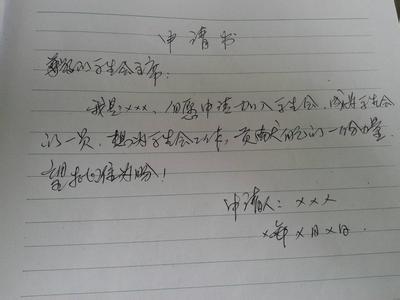 申请书
尊敬的学生会主席：
我是：×××，向您申请加入学生会，成为学生会
的一员，想为学生会工作，贡献自己的一份力量
望批准为盼！
申请人：×××
×年×月×日.